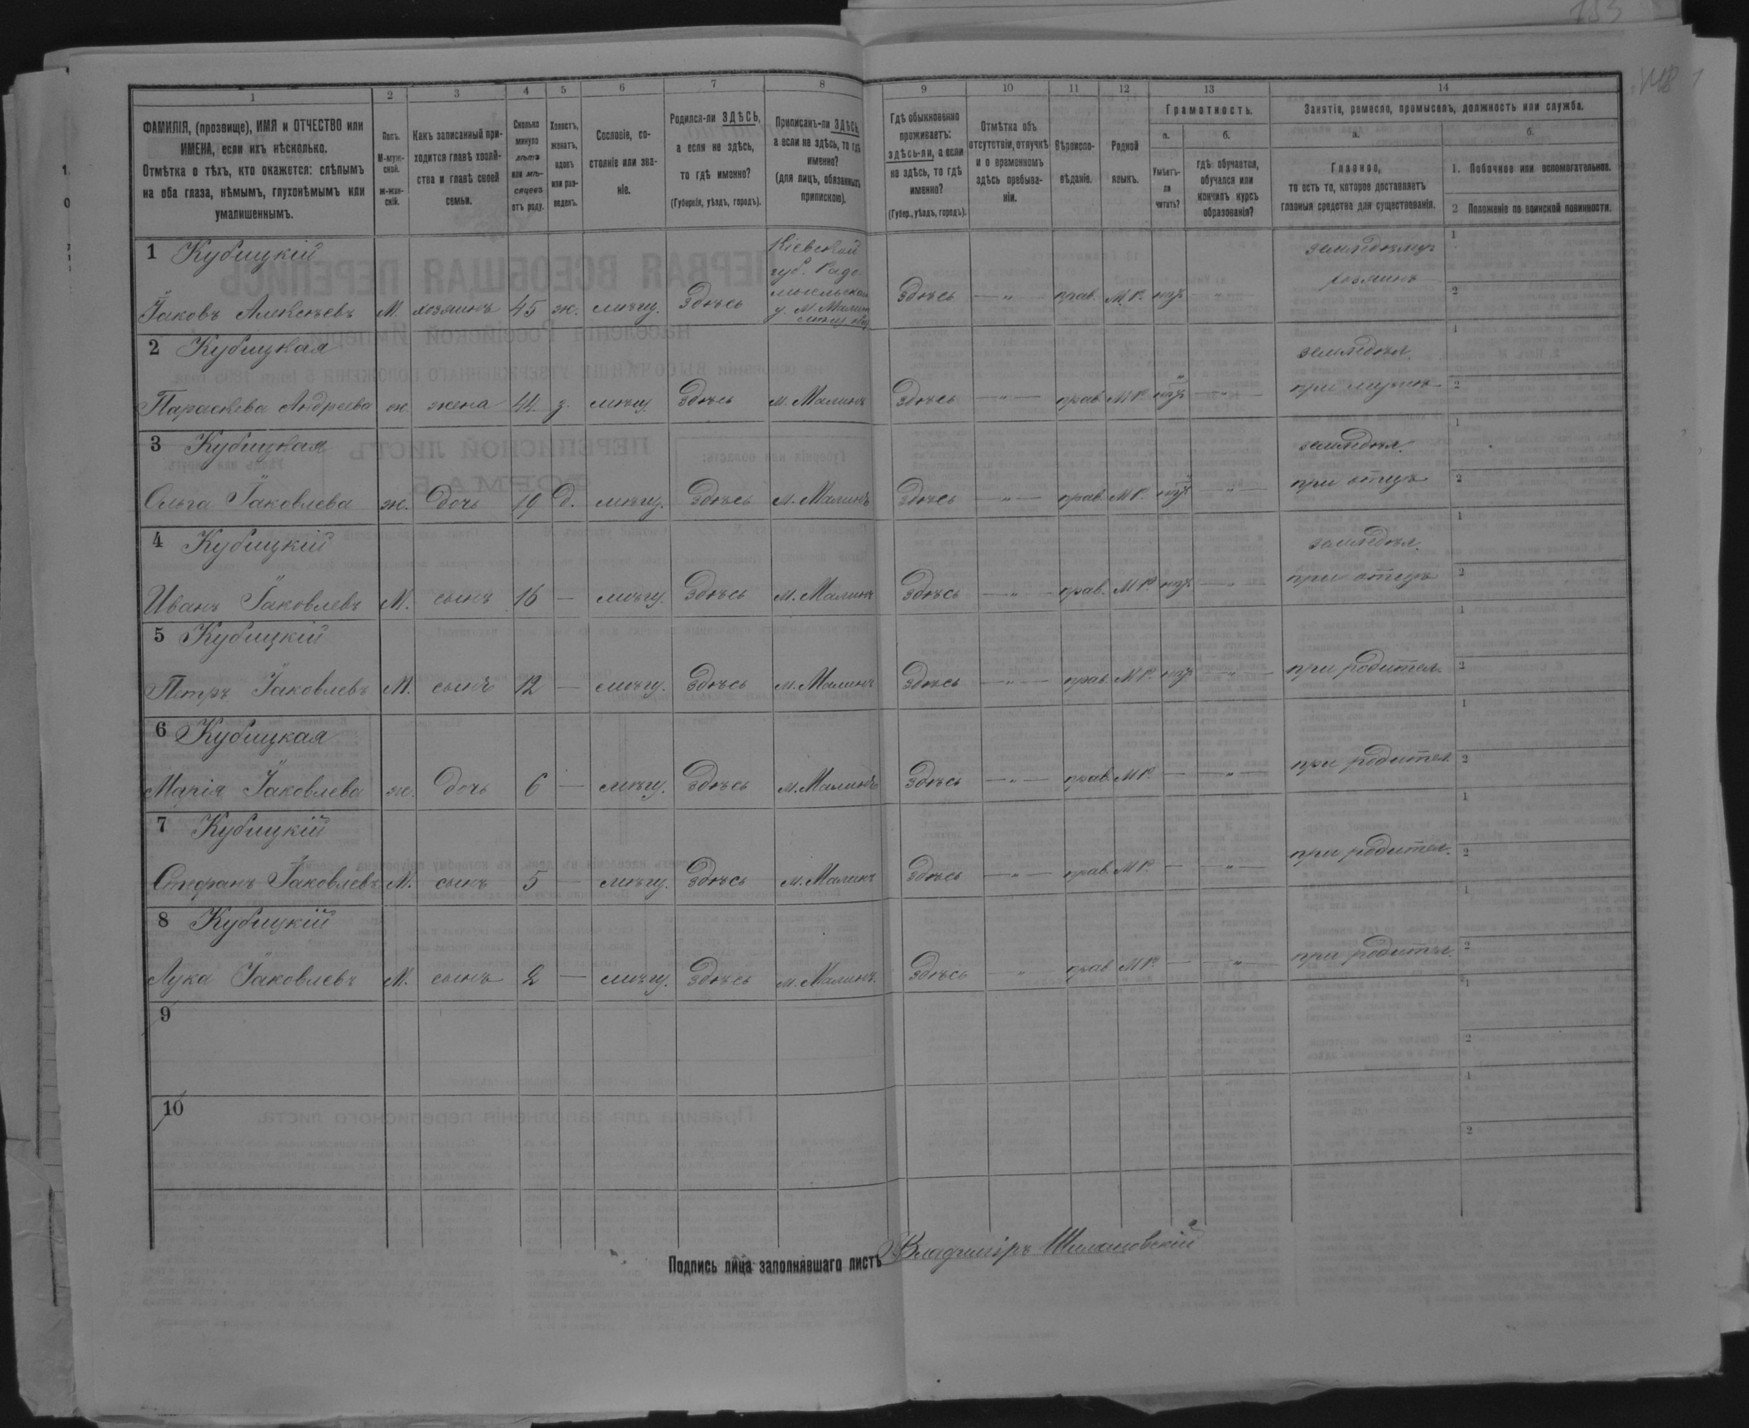 153
148
1 2 3 4 5 6 7 8 9 10 11 12 13 14
ФАМИЛІЯ, (прозвище), ИМЯ и ОТЧЕСТВО или
ИМЕНА, если ихъ нѣсколько.
Отмѣтка о тѣхъ, кто окажется: слѣпымъ
на оба глаза, нѣмымъ, глухонѣмымъ или
умалишеннымъ.
Полъ.
М-муж-
ской.
ж-жен-
скій.
Какъ записанный при-
ходится главѣ хозяй-
ства и главѣ своей
семьи.
Сколько
минуло
лѣтъ
или мѣ-
сяцевъ
отъ роду.
Холостъ,
женатъ,
вдовъ
или раз-
веденъ.
Сословіе, со-
стояніе или зва-
ніе.
Родился-ли ЗДѢСЬ,
а если не здѣсь,
то гдѣ именно?
(Губернія, уѣздъ, городъ).
Приписанъ-ли ЗДѢСЬ,
а если не здѣсь, то гдѣ
именно?
(для лицъ, обязанныхъ
припискою).
Гдѣ обыкновенно
проживаетъ:
здѣсь-ли, а если
не здѣсь, то гдѣ
именно?
(Губер., уѣздъ, городъ).
Отмѣтка объ
отсутствіи, отлучкѣ
и о временномъ
здѣсь пребыва-
ніи.
Вѣроиспо-
вѣданіе.
Родной
языкъ.
Грамотность.
а. б.
Умѣетъ-
ли
читать?
гдѣ обучается,
обучался или
кончилъ курсъ
образованія?
Занятіе, ремесло, промыселъ, должность или служба.
а. б.
Главное,
то есть то, которое доставляетъ
главныя средства для существованія.
1. Побочное или вспомогательное.
2 Положеніе по воинской повинности.
1 Кубицкій
Іаковъ Алексѣевъ М. хозяинъ 45 ж. мѣщ. Здѣсь
Кіевской
губ. Радо
мысльскаго
у. М. Малин
Здѣсь — " — прав. М.Р. нѣтъ —
хозяинъ
1
2
2 Кубицкая
Параскева Андреева ж. жена 44. з. мѣщ. Здѣсь м. Малинъ Здѣсь — " — прав. М.Р. нѣтъ — " —
земледѣл.
при мужѣ
1
2
3 Кубицкая
Ольга Іаковлева ж. дочь 19 д. мѣщ. Здѣсь м. Малинъ Здѣсь — " — прав. М.Р. нѣтъ — " —
земледѣл.
при отцѣ
1
2
4 Кубицкій
Иванъ Іаковлевъ М. сынъ 16 — мѣщ. Здѣсь м. Малинъ Здѣсь — " — прав. М.Р. нѣтъ — " —
земледѣл.
при отцѣ
1
2
5 Кубицкій
Петръ Іаковлевъ М. сынъ 12 — мѣщ. Здѣсь м. Малинъ Здѣсь — " — прав. М.Р. нѣтъ — " — при родител.
1
2
6 Кубицкая
Марія Іаковлева ж. дочь 6 — мѣщ. Здѣсь м. Малинъ Здѣсь — " — прав. М.Р. — — " — при родител.
1
2
7 Кубицкій
Стефанъ Іаковлевъ М. сынъ 5 — мѣщ. Здѣсь м. Малинъ Здѣсь — " — прав. М.Р. — — " — при родител.
1
2
8 Кубицкій
Лука Іаковлевъ М. сынъ 2 — мѣщ. Здѣсь м. Малинъ. Здѣсь " прав. М.Р. — " — при родител.
1
2
9
1
2
10
1
2
Подпись лица заполнявшаго листъ Владиміръ